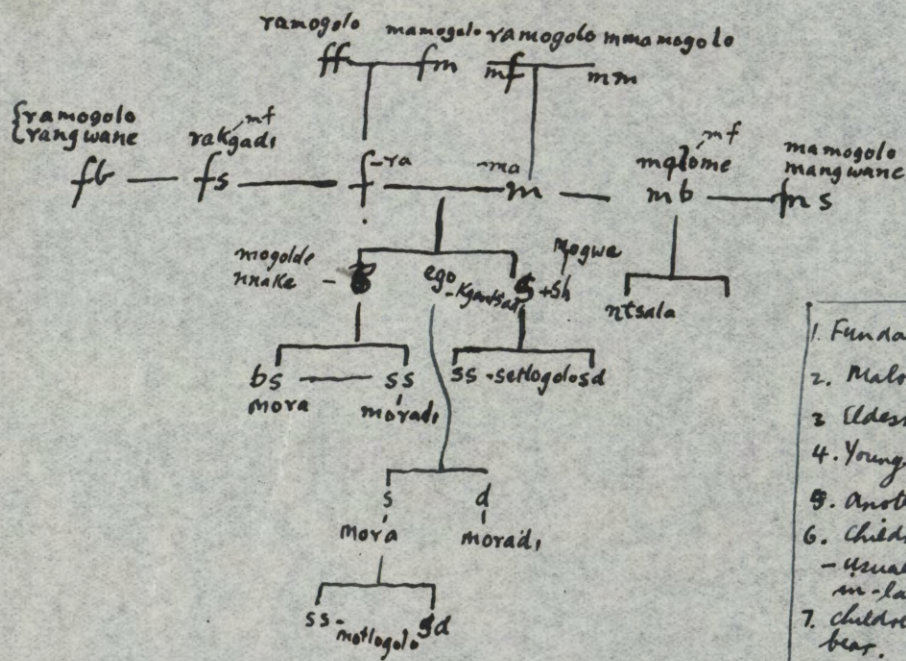 ramogolo mamogolo ramogolo mmamogolo
ff fm mf mm
{ramogolo
{rangwane
rakgadi mf
-ra -ma
malome mf
mamogolo
mangwane
fb fs f m mb ms
mogolde
nnake -
ego
-kgantsadi
s + sh
Mogwe
ntsala
bs ss
mora moradi
ss - setlogolo sd
s d
mora moradi
ss - motlogolo sd
1. Funda
2. Malo
3 Eldes
4. Young
5. Anoth
6. Childr
- usual
in-la
7. children
bear.